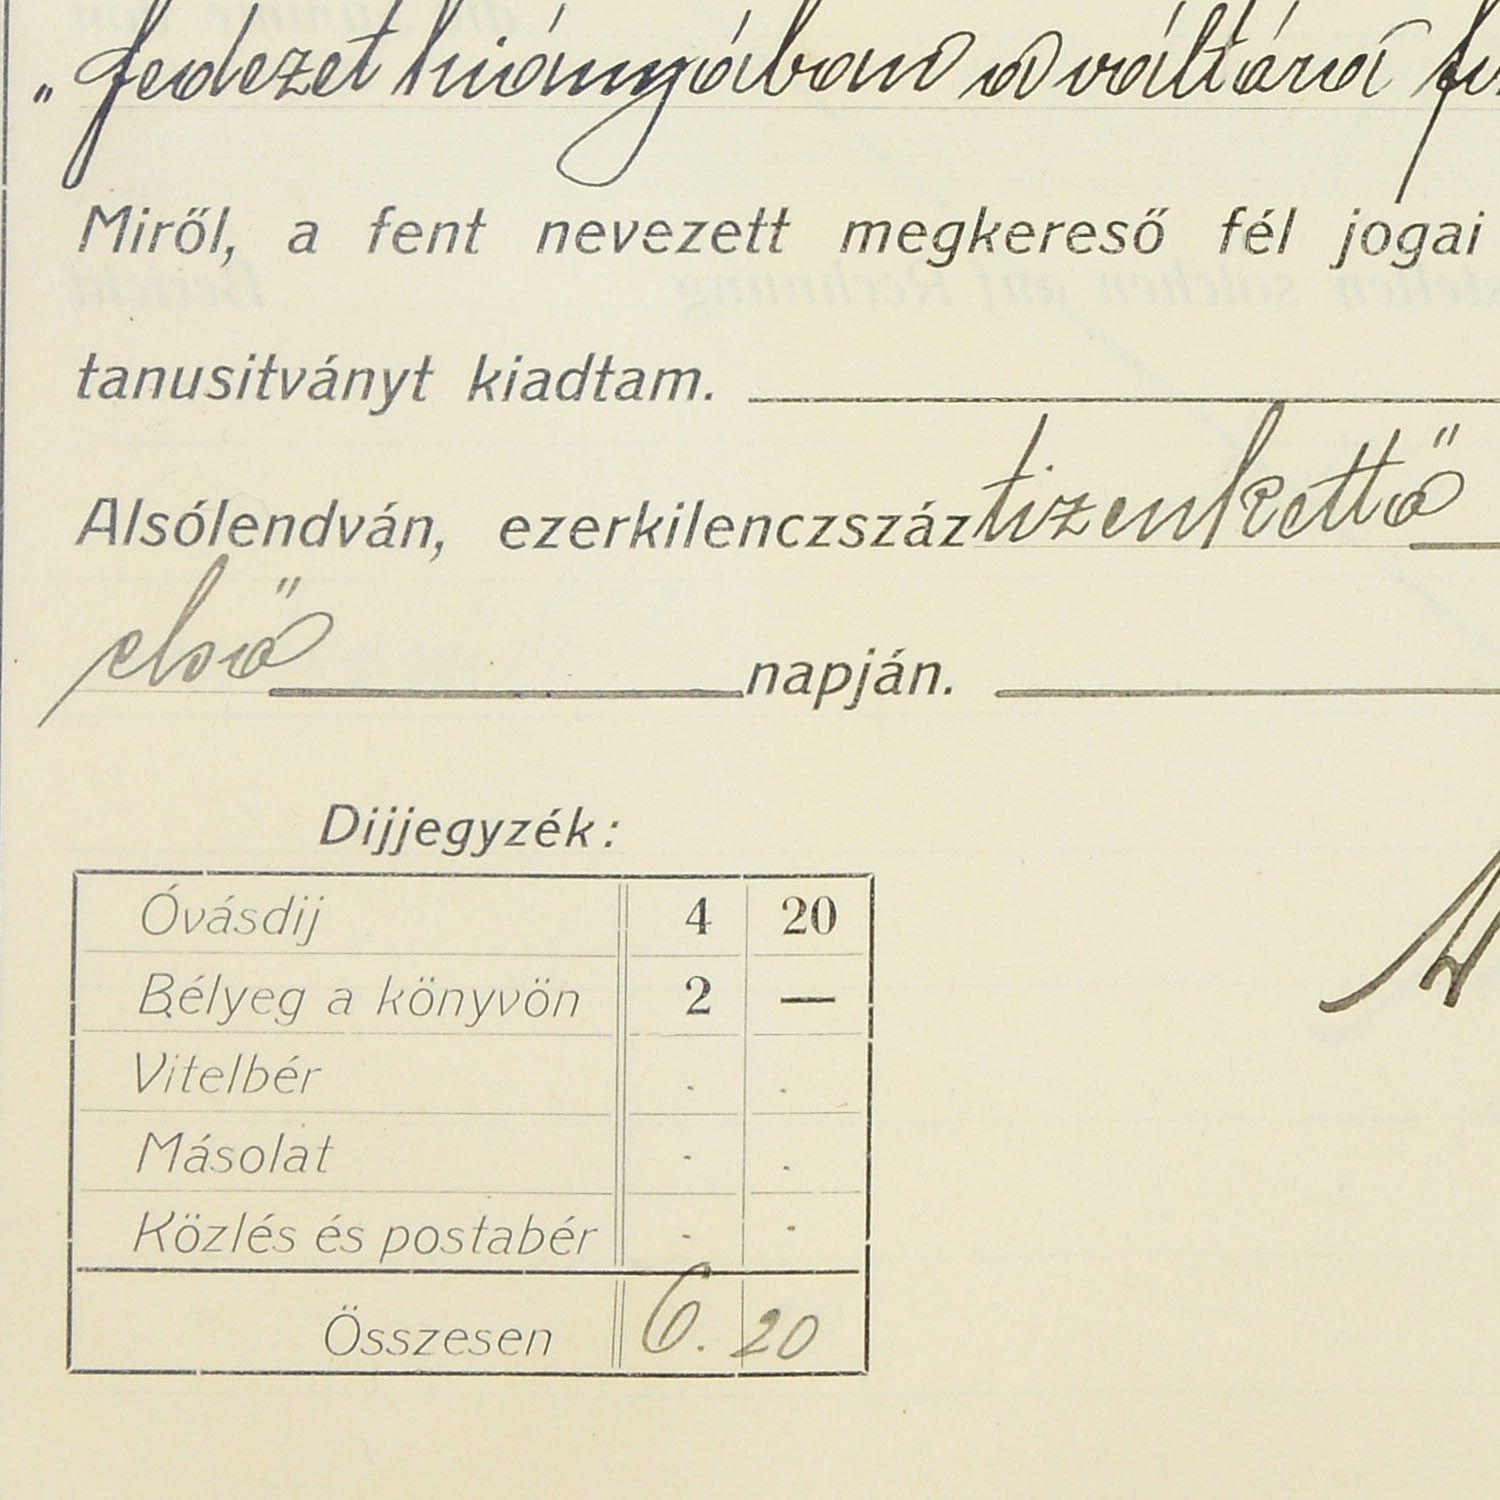 „fedezet hiányában a váltóra
Miről, a fent nevezett megkereső fél jogai
tanusitványt kiadtam.
Alsólendván, ezerkilenczszáz tizenkettő
első napján.
Dijjegyzék:
Óvásdij 4 20
Bélyeg a könyvön 2 —
Vitelbér . .
Másolat . .
Közlés és postabér . .
Összesen 6. 20